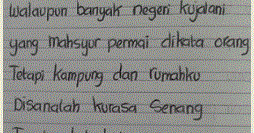 Walaupun banyak negeri kujalani
yang Mahsyur permai dikata orang
Tetapi kampung dan rumahku
Disanalah kurasa Senang